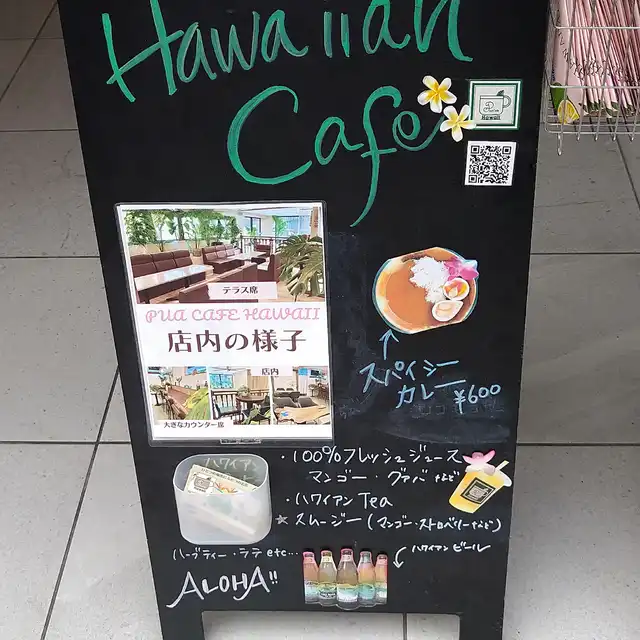 Hawaiian
Cafe
Hawaii
テラス席
PUA CAFE HAWAII
店内の様子
店内
大きなカウンター席
スパイシー
カレー ¥600
・100%フレッシュジュース
マンゴー・グァバ など
・ハワイアン Tea
☆ スムージー (マンゴー・ストロベリーなど)
ハーブティー・ラテ etc...
ハワイアン ビール
ALOHA!!